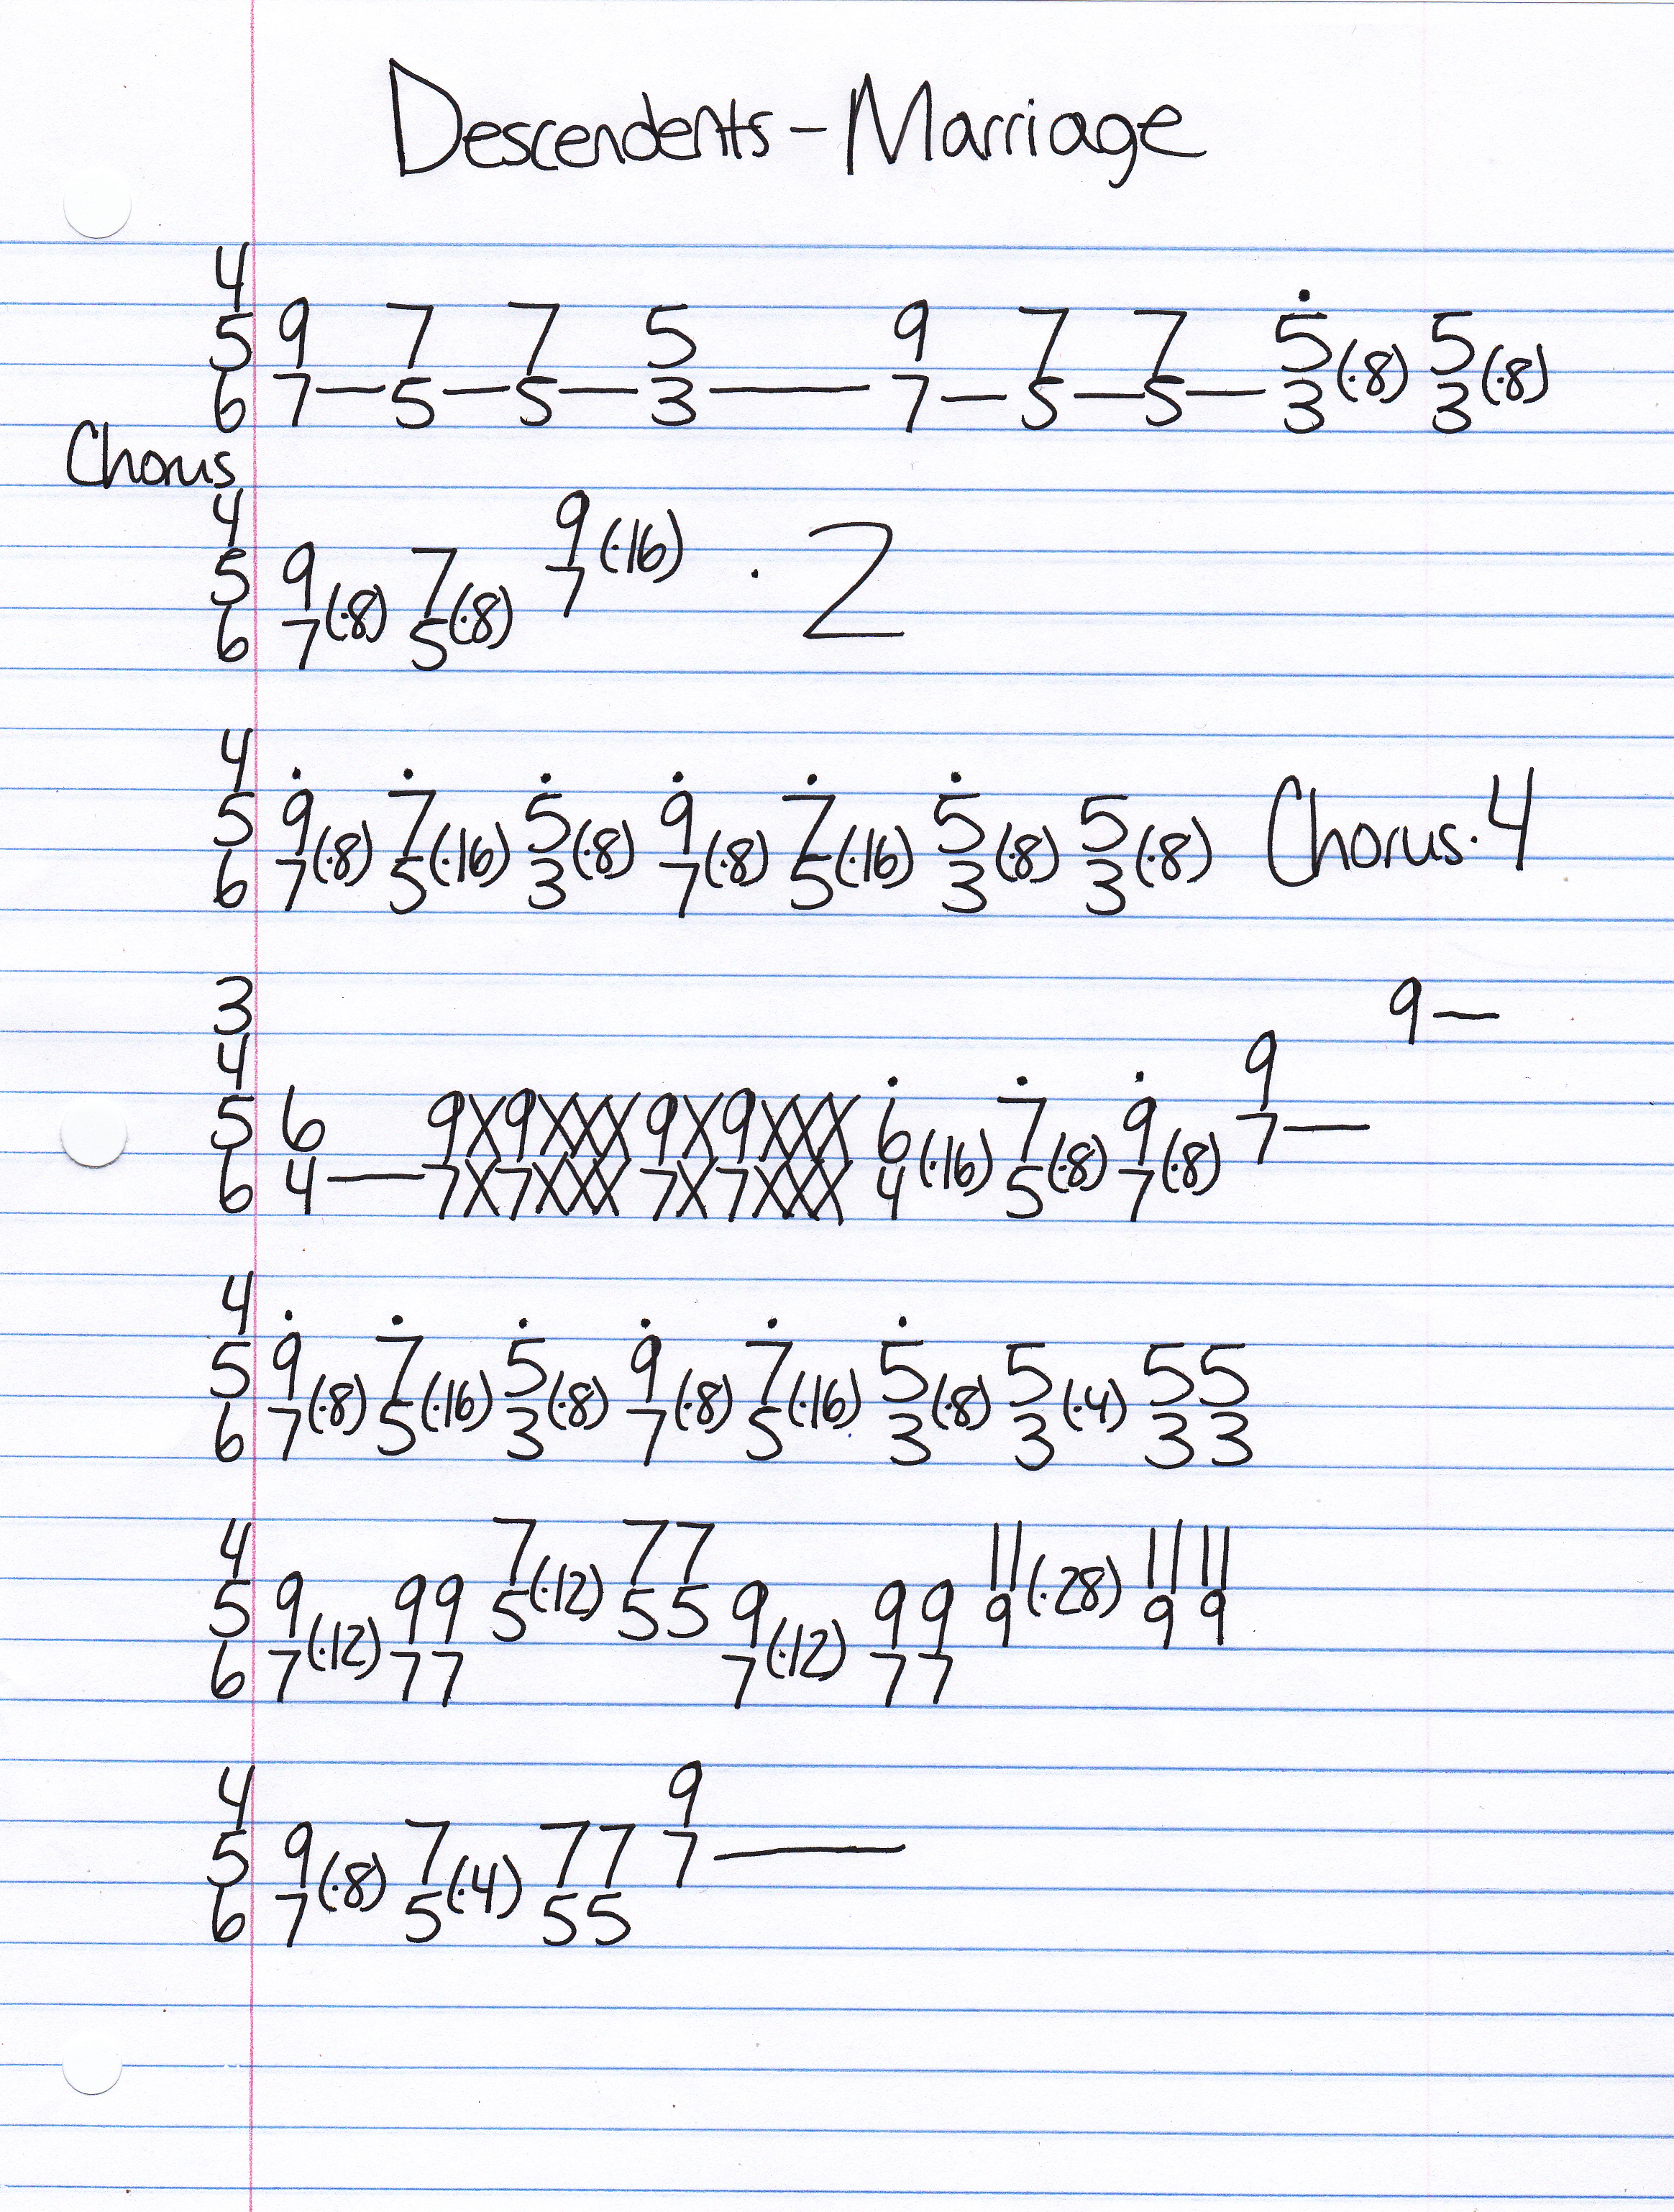 Descendents - Marriage
4
5 9 7 7 5 9 7 7 5 5
6 7—5—5—3——7—5—5—3(·8) 3(·8)
Chorus
4 9(·16) · 2
5 9 7 7
6 7(·8) 5(·8)
4
5 9 7 5 9 7 5 5 Chorus · 4
6 7(·8) 5(·16) 3(·8) 7(·8) 5(·16) 3(·8) 3(·8)
3 9—
4 9
5 6 9X9XXX 9X9XXX 6 7 9 7—
6 4——7X7XXX 7X7XXX 4(·16) 5(·8) 7(·8)
4
5 9 7 5 9 7 5 5 5 5
6 7(·8) 5(·16) 3(·8) 7(·8) 5(·16) 3(·8) 3(·4) 3 3
4 7 7 7 11 11 11
5 9 9 9 5(·12) 5 5 9 9 9 9(·28) 9 9
6 7(·12) 7 7 7(·12) 7 7
4 9
5 9 7 7 7 7——
6 7(·8) 5(·4) 5 5